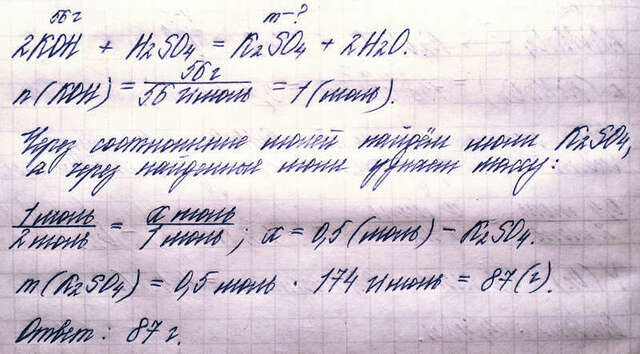 56 г m-?
2KOH + H2SO4 = K2SO4 + 2H2O.
n(KOH) = 56 г / 56 г/моль = 1 (моль).
Через соотношение молей найдём моли K2SO4,
а через найденные моли узнаем массу:
1 моль / 2 моль = x моль / 1 моль; x = 0,5 (моль) - K2SO4.
m(K2SO4) = 0,5 моль · 174 г/моль = 87 (г).
Ответ: 87 г.